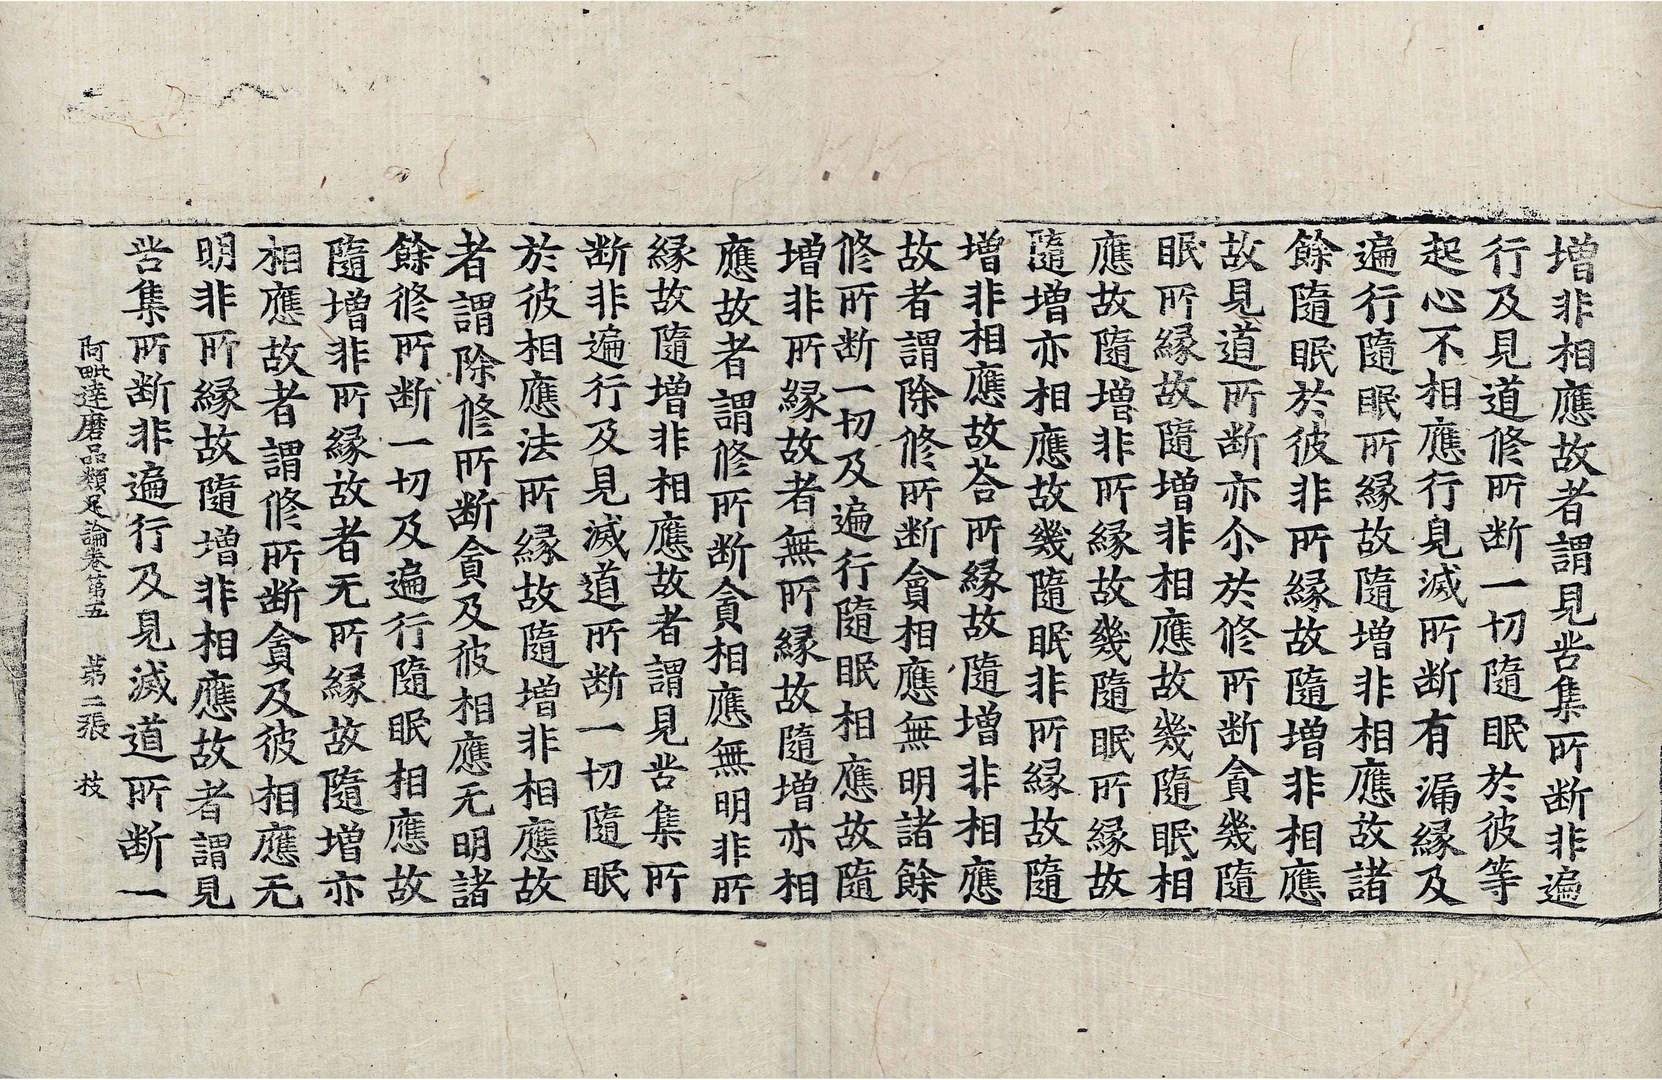 增非相應故者謂見苦集所断非遍
行及見道修所断一切隨眠於彼等
起心不相應行見滅所断有漏縁及
遍行隨眠所縁故隨增非相應故諸
餘隨眠於彼非所縁故隨增非相應
故見道所断亦尒於修所断貪幾隨
眠所縁故隨增非相應故幾隨眠相
應故隨增非所縁故幾隨眠所縁故
隨增亦相應故幾隨眠非所縁故隨
增非相應故荅所縁故隨增非相應
故者謂除修所断貪相應無明諸餘
修所断一切及遍行隨眠相應故隨
增非所縁故者無所縁故隨增亦相
應故者謂修所断貪相應無明非所
縁故隨增非相應故者謂見苦集所
断非遍行及見滅道所断一切隨眠
於彼相應法所縁故隨增非相應故
者謂除修所断貪及彼相應无明諸
餘修所断一切及遍行隨眠相應故
隨增非所縁故者无所縁故隨增亦
相應故者謂修所断貪及彼相應无
明非所縁故隨增非相應故者謂見
苦集所断非遍行及見滅道所断一
阿毗達磨品類足論卷第五 第二張 枝